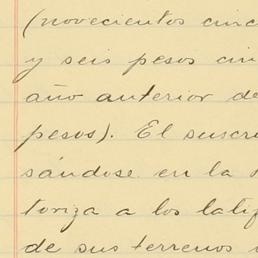 (novecientos cinc
y seis pesos cin
año anterior de
pesos). El suscri
sándose en la
toriza a los latif
de sus terrenos